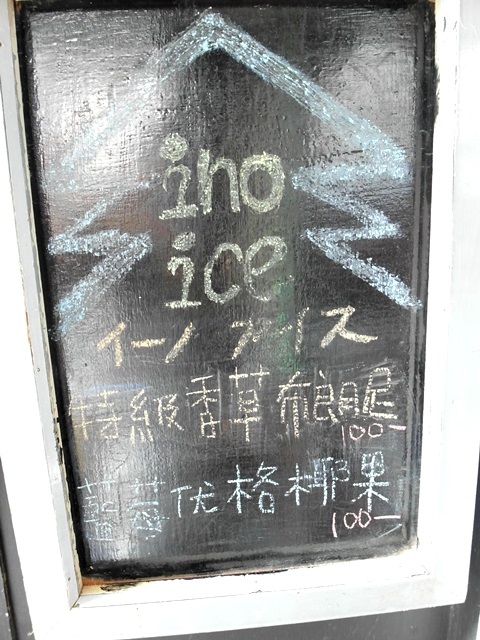 ino
ice
イーノ アイス
特級香草布朗尼
100-
藍莓优格椰果
100-